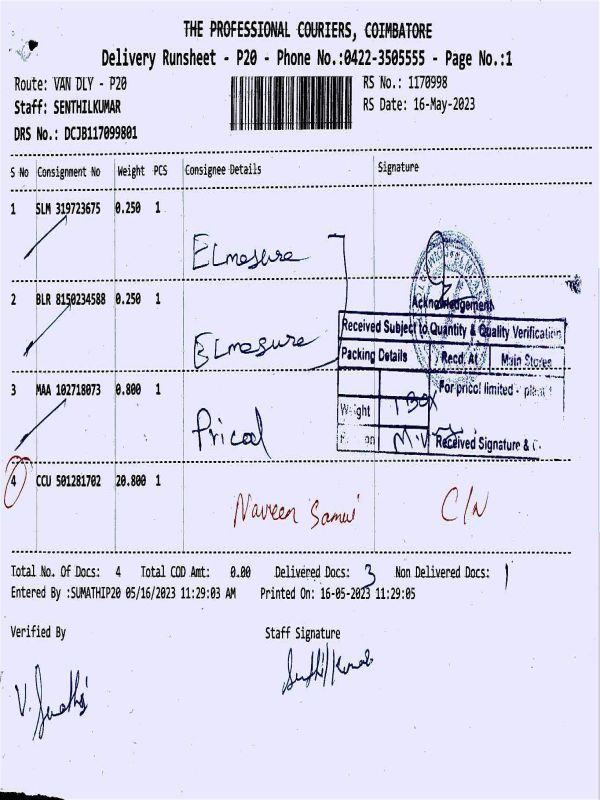 THE PROFESSIONAL COURIERS, COIMBATORE
Delivery Runsheet - P20 - Phone No.:0422-3505555 - Page No.:1
Route: VAN DLY - P20
RS No.: 1170998
Staff: SENTHILKUMAR
RS Date: 16-May-2023
DRS No.: DCJB117099801
S No Consignment No Weight PCS Consignee Details Signature
1 SLM 319723675 0.250 1
Elmesure
2 BLR 8150234588 0.250 1
Elmesure
Acknowledgement
Received Subject to Quantity & Quality Verification
Packing Details Recd. At Main Stores
3 MAA 102718073 0.800 1
For pricol limited - plant
Pricol
Weight 1 Box
Received Signature &
4 CCU 501281702 20.800 1
Naveen Samui C/N
Total No. Of Docs: 4 Total COD Amt: 0.00 Delivered Docs: 3 Non Delivered Docs: 1
Entered By :SUMATHIP20 05/16/2023 11:29:03 AM Printed On: 16-05-2023 11:29:05
Verified By Staff Signature
Senthil Kumar